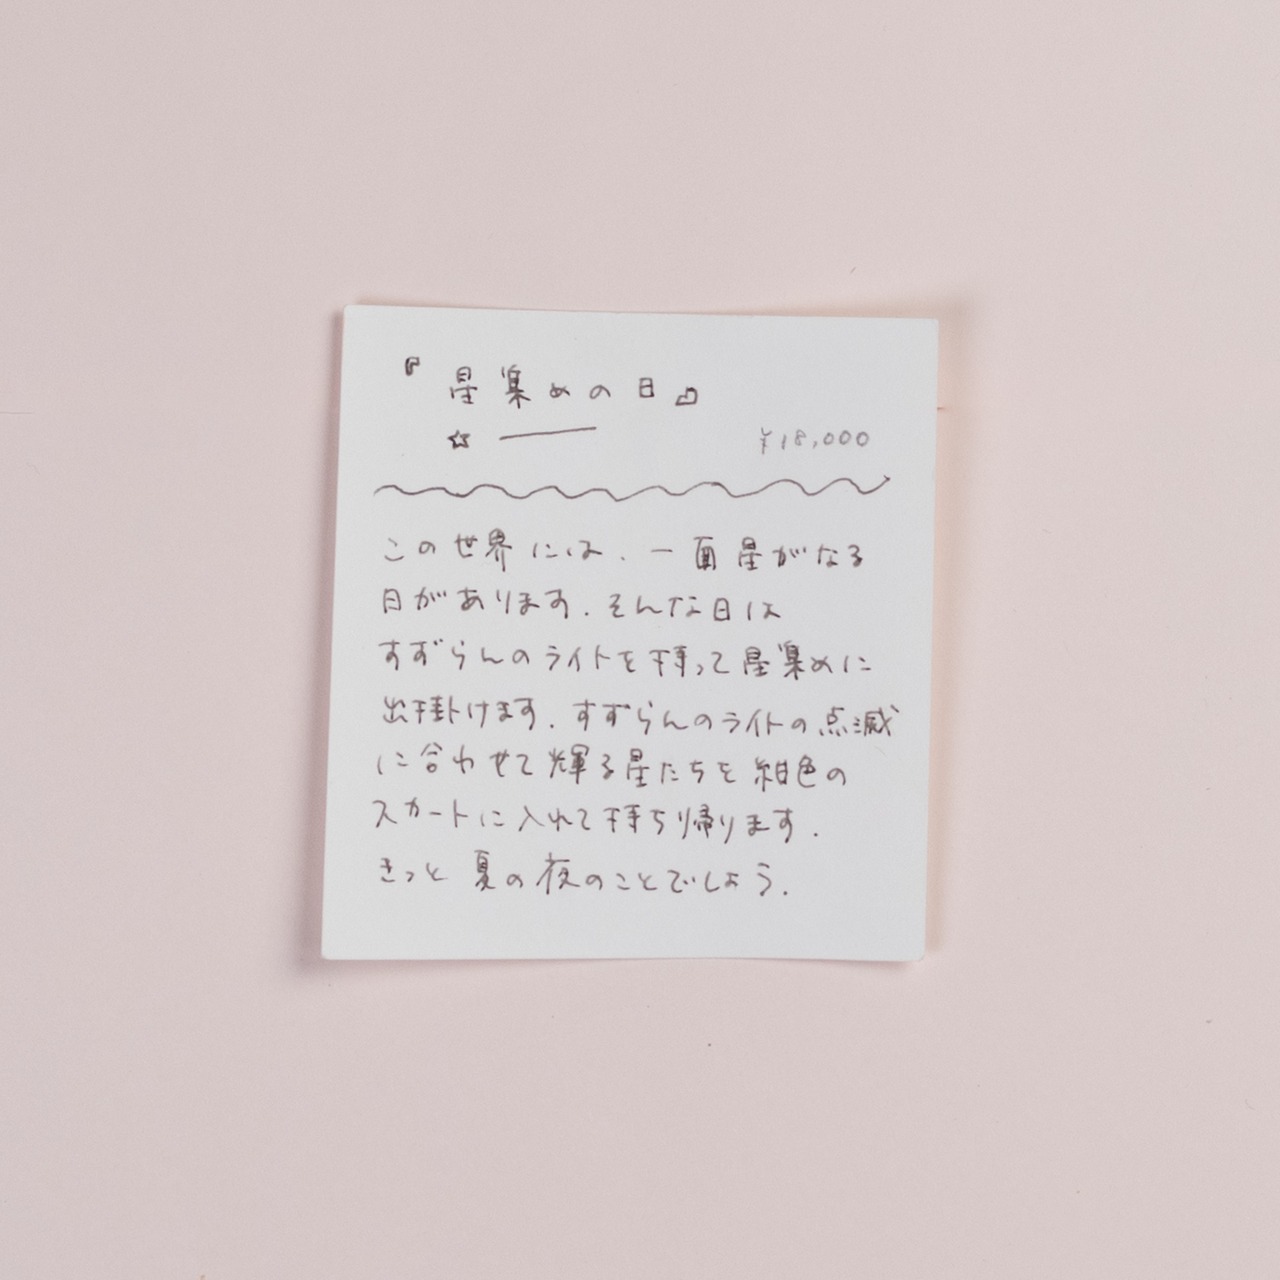 『星集めの日』
☆ ―― ¥18,000
この世界には、一面星がなる
日があります. そんな日は
すずらんのライトを持って星集めに
出掛けます. すずらんのライトの点滅
に合わせて輝る星たちを紺色の
スカートに入れて持ち帰ります.
きっと夏の夜のことでしょう.